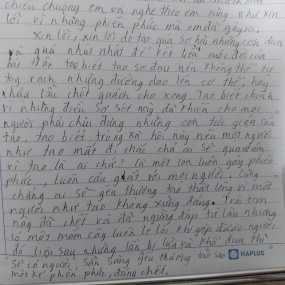 chiều chuộng em và nghe theo em cũng như xin
lỗi vì những phiền phức mà em đã gây ra.
Xin lỗi, xin lỗi đã tạo quá sợ hãi những con dao
và quá nhu nhát để kết liễu cuộc đời của
bản thân tao biết tao sợ đau nên không thể tự
tay rạch những đường dao lên cơ thể, hay
chưa lúc chết quách cho xong. Tao biết chính
vì những điều sợ sệt này đã khiến cho mọi
người phải chịu đựng những cơn tức giận của
tao, tao biết trong xã hội này nếu một người
như tao mất đi chắc chả ai sẽ quan tâm
vì tao là ai chứ? là một con luôn gây phiền
phức, luôn cáu gắt với mọi người. Cũng
chẳng ai sẽ yêu thương tao thật lòng vì một
người như tao không xứng đáng. Trái tim
này đã chết và đã ngừng đập từ lâu nhưng
có một mầm cây luôn le lói khi gặp được người
đó liệu sau những lần bị lừa và khổ đau thì
sẽ có người sẵn sàng yêu thương tao sao
một kẻ phiền phức, đáng chết.
HAPLUS